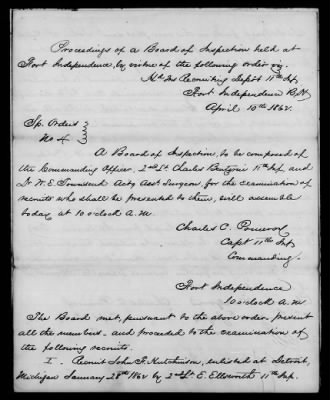 Proceedings of a Board of Inspection held at
Fort Independence, by virtue of the following order viz.
Hd. Qrs Recruiting Depot 11th Inf.
Fort Independence B.H.
April 10th 1862.
Sp. Orders
No 4
A Board of Inspection, to be composed of
the Commanding Officer, 2nd Lt. Charles 11th Inf. and
Dr W. E. Townsend Actg Asst Surgeon, for the examination of
recruits who shall be presented to them, will assemble
today at 10 o'clock A.M.
Charles C. Pomeroy
Capt 11th Inf.
Commanding.
Fort Independence
10 o'clock A.M.
The Board met, pursuant to the above order, present
all the members, and proceeded to the examination of
the following recruits.
I. Recruit John F. Hutchinson, enlisted at Detroit,
Michigan January 28th 1862 by 2nd Lt. E. Ellsworth 11th Inf.